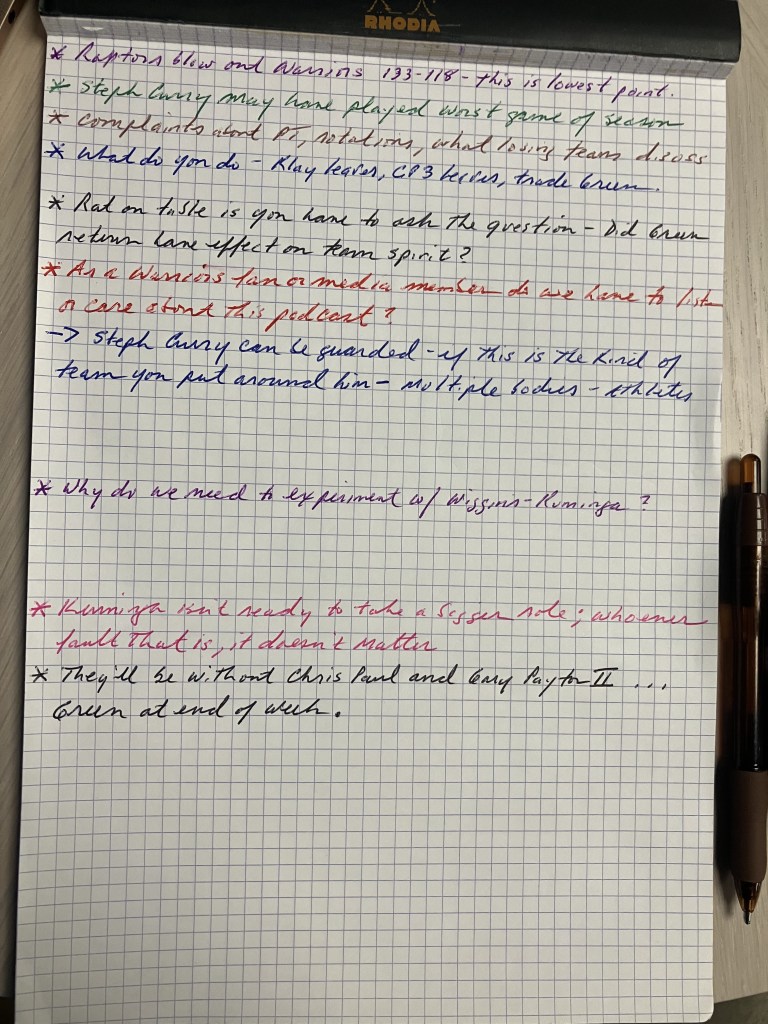 RHODIA
* Raptors blow out Warriors 133-118 - this is lowest point.
* Steph Curry may have played worst game of season
* complaints about PT, rotations, what losing teams discuss
* What do you do - Klay leaves, CP3 leaves, trade Green.
* Rat on table is you have to ask the question - Did Green
return have effect on team spirit?
* As a Warriors fan or media member do we have to listen
or care about this podcast?
-> Steph Curry can be guarded - if this is the kind of
team you put around him - multiple bodies - athletes
* Why do we need to experiment w/ Wiggins-Kuminga?
* Kuminga isn't ready to take a bigger role; whoever
fault that is, it doesn't matter
* They'll be without Chris Paul and Gary Payton II ...
Green at end of week.